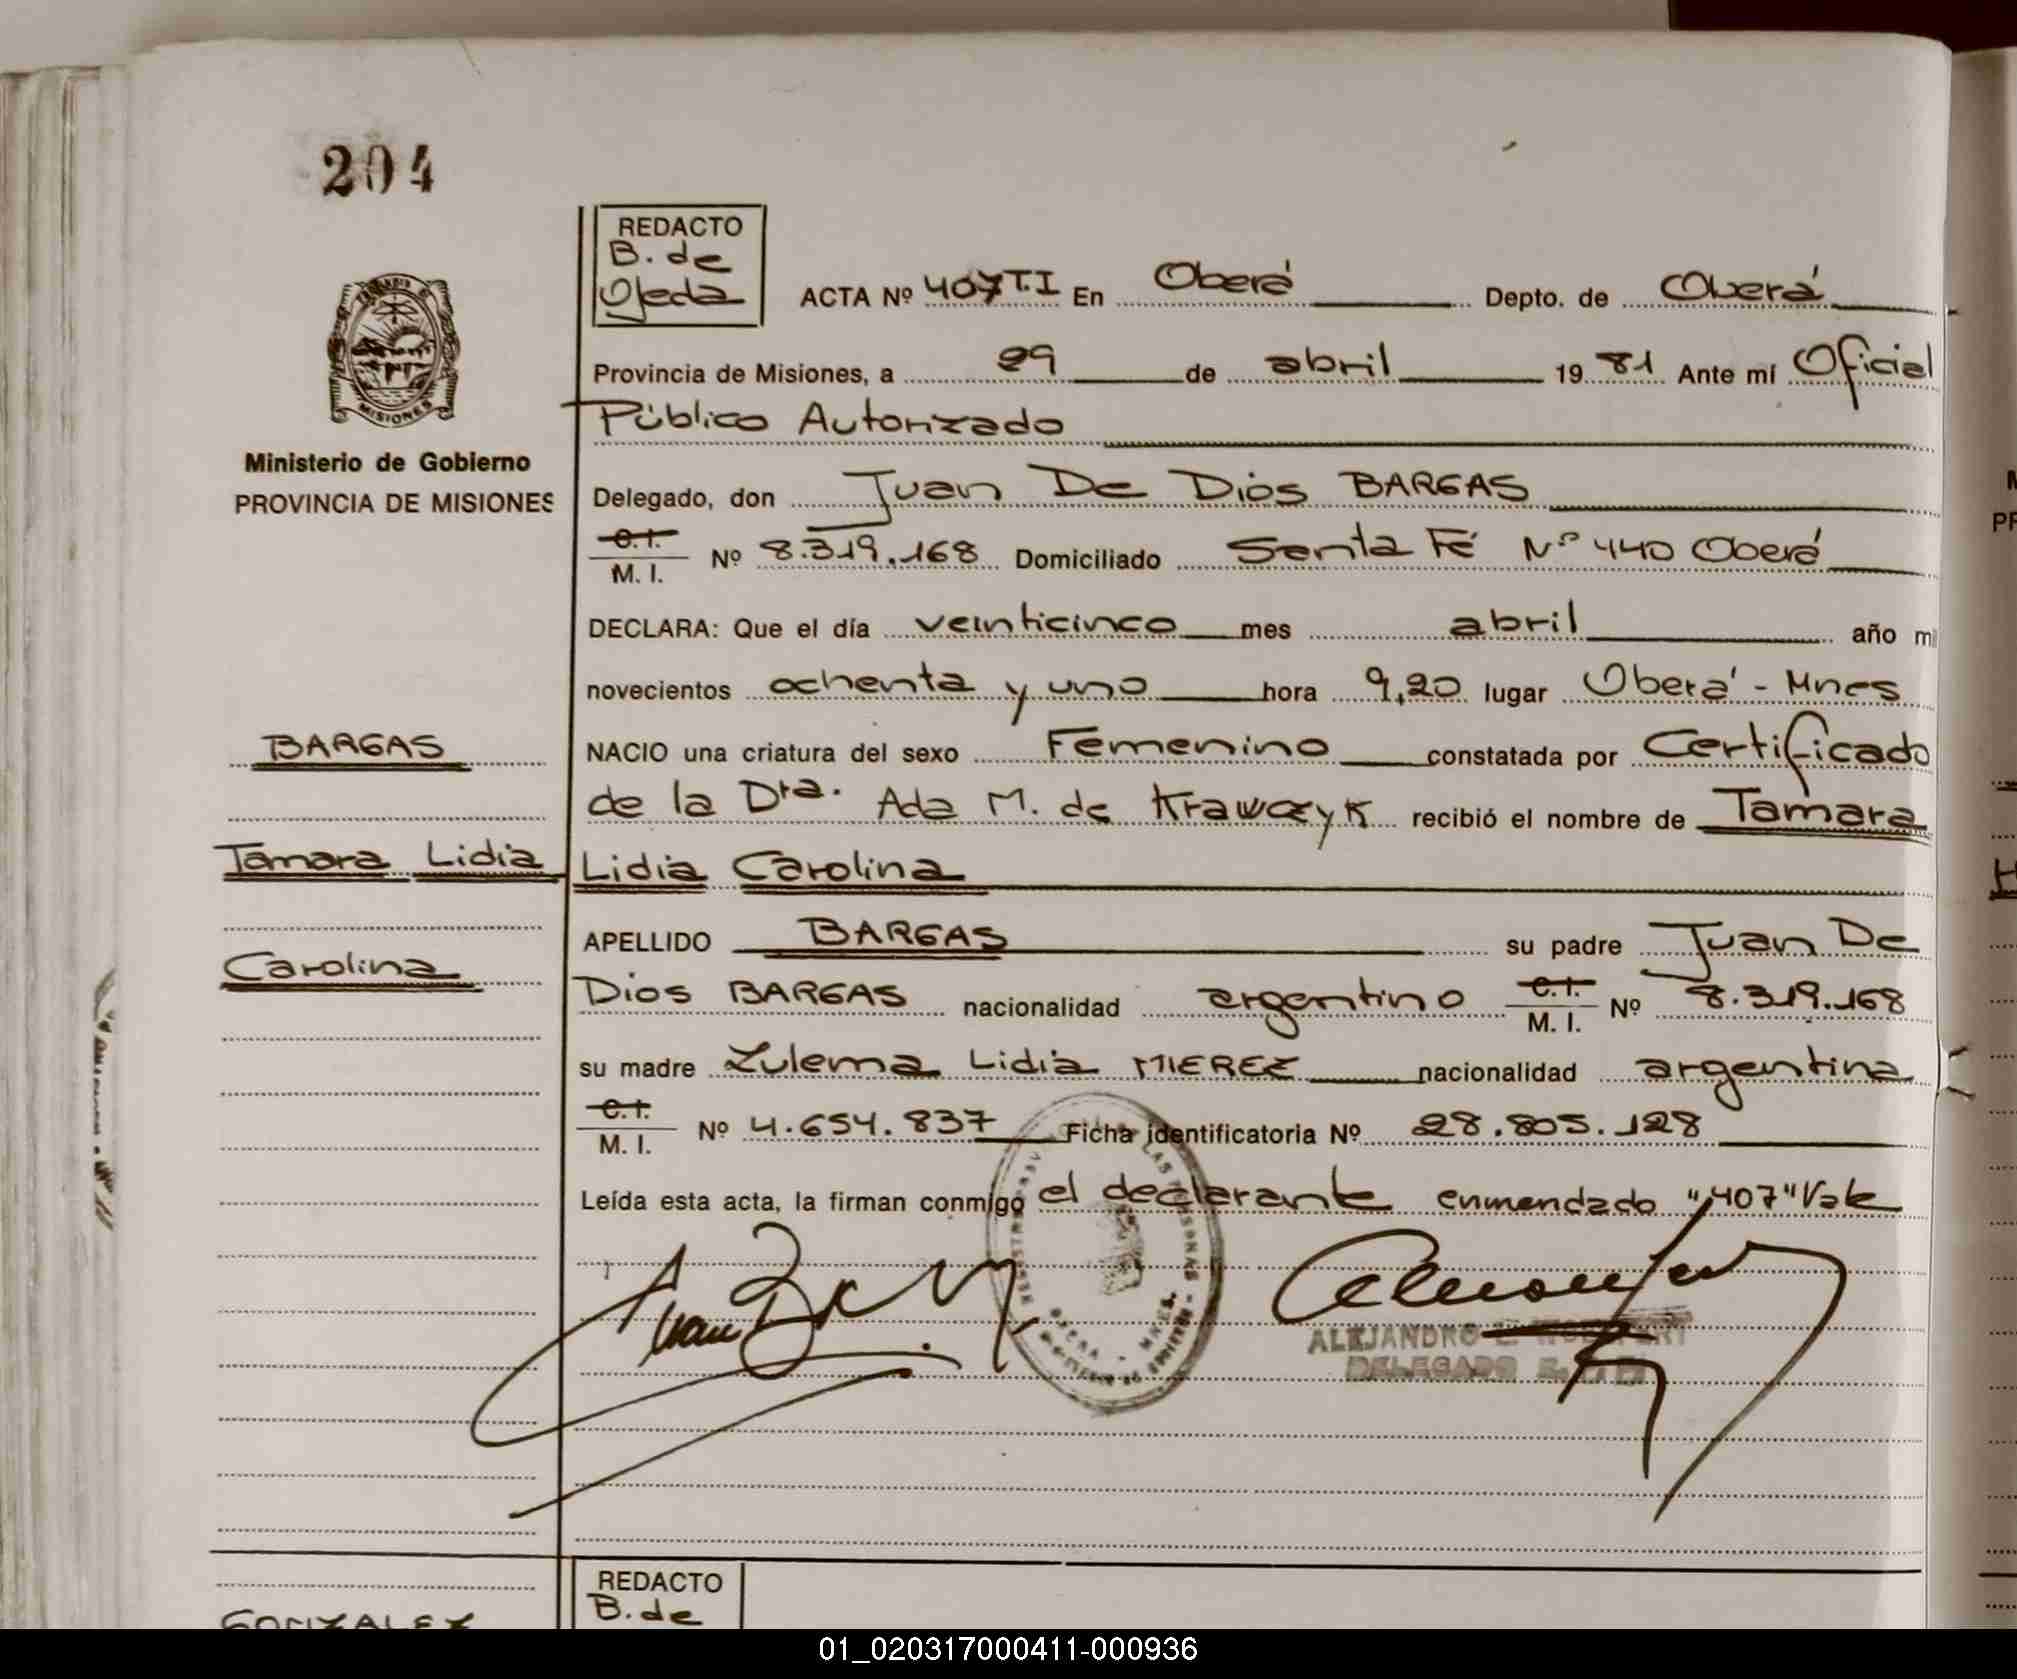 204
REDACTO
B. de
Ojeda
ACTA Nº 407 T.I En Oberá Depto. de Oberá
Provincia de Misiones, a 29 de abril 19 81 Ante mí Oficial
Público Autorizado
Ministerio de Gobierno
PROVINCIA DE MISIONES
Delegado, don Juan De Dios BARGAS
C.I.
M. I. Nº 8.319.168 Domiciliado Santa Fé Nº 440 Oberá
DECLARA: Que el día veinticinco mes abril año mil
novecientos ochenta y uno hora 9,20 lugar Oberá - Mnes
BARGAS
NACIO una criatura del sexo Femenino constatada por Certificado
de la Dra. Ada M. de Krawczyk recibió el nombre de Tamara
Tamara Lidia
Lidia Carolina
Carolina
APELLIDO BARGAS su padre Juan De
Dios BARGAS nacionalidad argentino C.I. M. I. Nº 8.319.168
su madre Zulema Lidia MIEREZ nacionalidad argentina
C.I.
M. I. Nº 4.654.837 Ficha identificatoria Nº 28.805.128
Leída esta acta, la firman conmigo el declarante enmendado "407" Vale
ALEJANDRO
DELEGADO
REDACTO
B. de
GONZALEZ
01_020317000411-000936